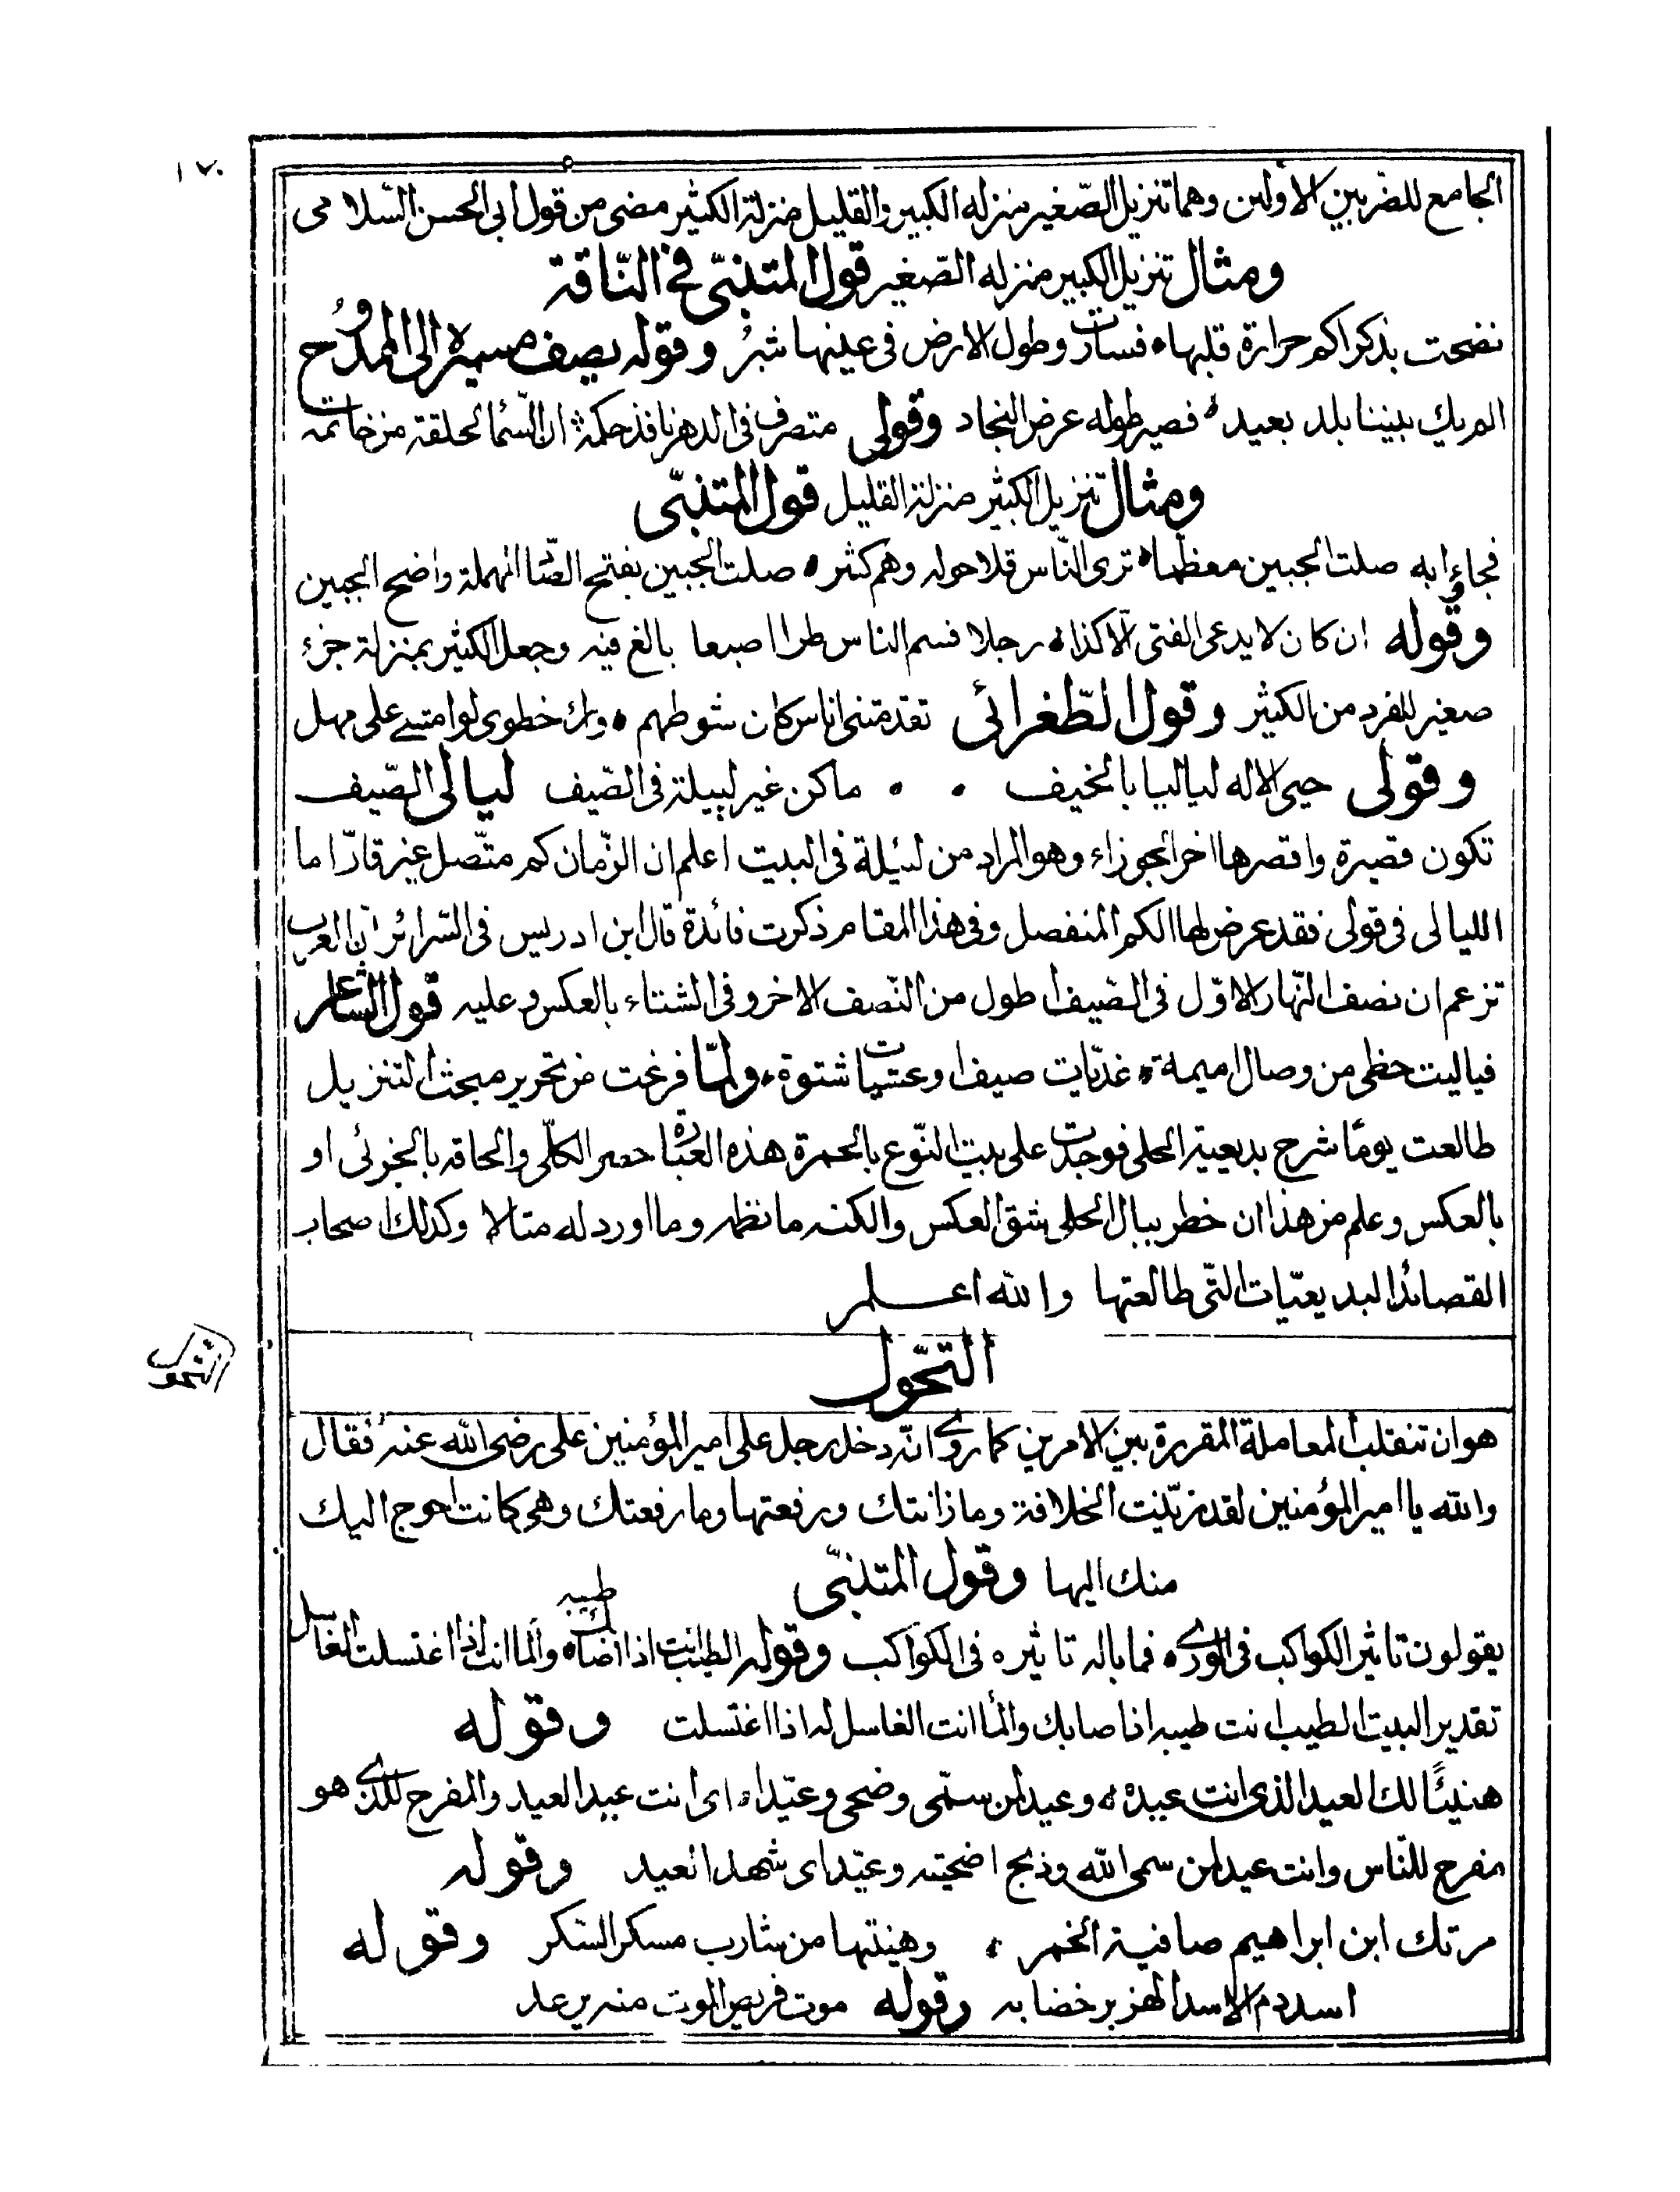 ١٧٠
الجامع للضربين الاولين وهما تنزيل الصّغير منزله الكبير والقليل منزلة الكثير مضى من قول ابى الحسن السّلامى
ومثال تنزيل الكبير منزله الصّغير قول المتنبّى فى النّاقة
نضحت بذكراكم حرارة قلبها ٥ فسارت وطول الارض فى عينها شبرُ وقوله يصف مسيره الى الممدوُح
الم يك بيننا بلد بعيد ٥ فصير طوله عرض النجاد وقولى متصرف فى الدهر نافذ حكمه ان السّما كحلقة من خاتمه
ومثال تنزيل الكثير منزلة القليل قول المتنبّى
فجاءا به صلت الجبين معظما ٥ ترى النّاس قلا حوله وهم كثر ٥ صلت الجبين بفتح الصّا المهملة واضح الجبين
وقُوله ان كان لا يدعى الفتى الّا كذا ٥ رجلا فسم الناس طرا اصبعا بالغ فيه وجعل الكثير بمنزلة جزء
صغير للفرد من الكثير وقول الطّغرائى تقدمتنى اناس كان شوطهم ٥ وراء خطوى لو امشى على مهل
وقولى حيى الاله لياليا بالخيف ٠ ٠ ماكن غير لييلة فى الصّيف ليالى الصّيف
تكون قصيرة واقصرها اخر الجوزاء وهو المراد من لييلة فى البيت اعلم ان الزّمان كم متّصل غير قارّ اما
الليالى فى قولى فقد عرض لها الكم المنفصل وفى هذا المقام ذكرت فائدة قال ابن ادريس فى السّرائر انّ العرب
تزعم ان نصف النّهار الاوّل فى الصّيف اطول من النّصف الاخر وفى الشتاء بالعكس وعليه قول الشاعر
فياليت حظى من وصال اميمة ٥ غدّيات صيف او عشيات اشتوة ٥ ولمّا فرغت من تحرير مبحث التنزيل
طالعت يومًا شرح بديعية الحلى فوجدت على بيت النّوع بالحمرة هذه العبارة حصر الكلّى والحاقه بالجزئى او
بالعكس وعلم من هذا ان خطر ببال الحلى شق العكس والكنه ما نظم وما اورد له مثالا وكذلك اصحاب
القصائد البديعيّات التّى طالعتها والله اعلم
التحّول
التحول
هو ان تنقلب المعاملة المقررة بين الامرين كما روى انّه دخل رجل على امير المؤمنين على رضى الله عنه فقال
والله يا امير المؤمنين لقد زيّنت الخلافة وما زانتك ورفعتها وما رفعتك وهى كانت احوج اليك
منك اليها وقول المتنبّى
يقولون تاثير الكواكب فى الورى ٥ فما باله تاثيره فى الكواكب وقوله الطيب انت اذا اصابك طيبه ٥ والما انت اذا اغتسلت الغاسل
تقدير البيت الطيب انت طيبه اذا صابك والما انت الغاسل له اذا اغتسلت وقوله
هنيئًا لك العيد الذى انت عيده ٥ وعيد لمن سمّى وضحى وعيّدا ٥ اى انت عيد العيد والمفرح للذى هو
مفرح للنّاس وانت عيد لمن سمى الله وذبح اضحيته وعيّد اى شهد العيد وقوله
مرتك ابن ابراهيم صافية الخمر ٥ وهنئتها من شارب مسكر السّكر وقوله
اسد دم الاسد الهزبر خضابه وقوله موت فريص الموت منه يرعد